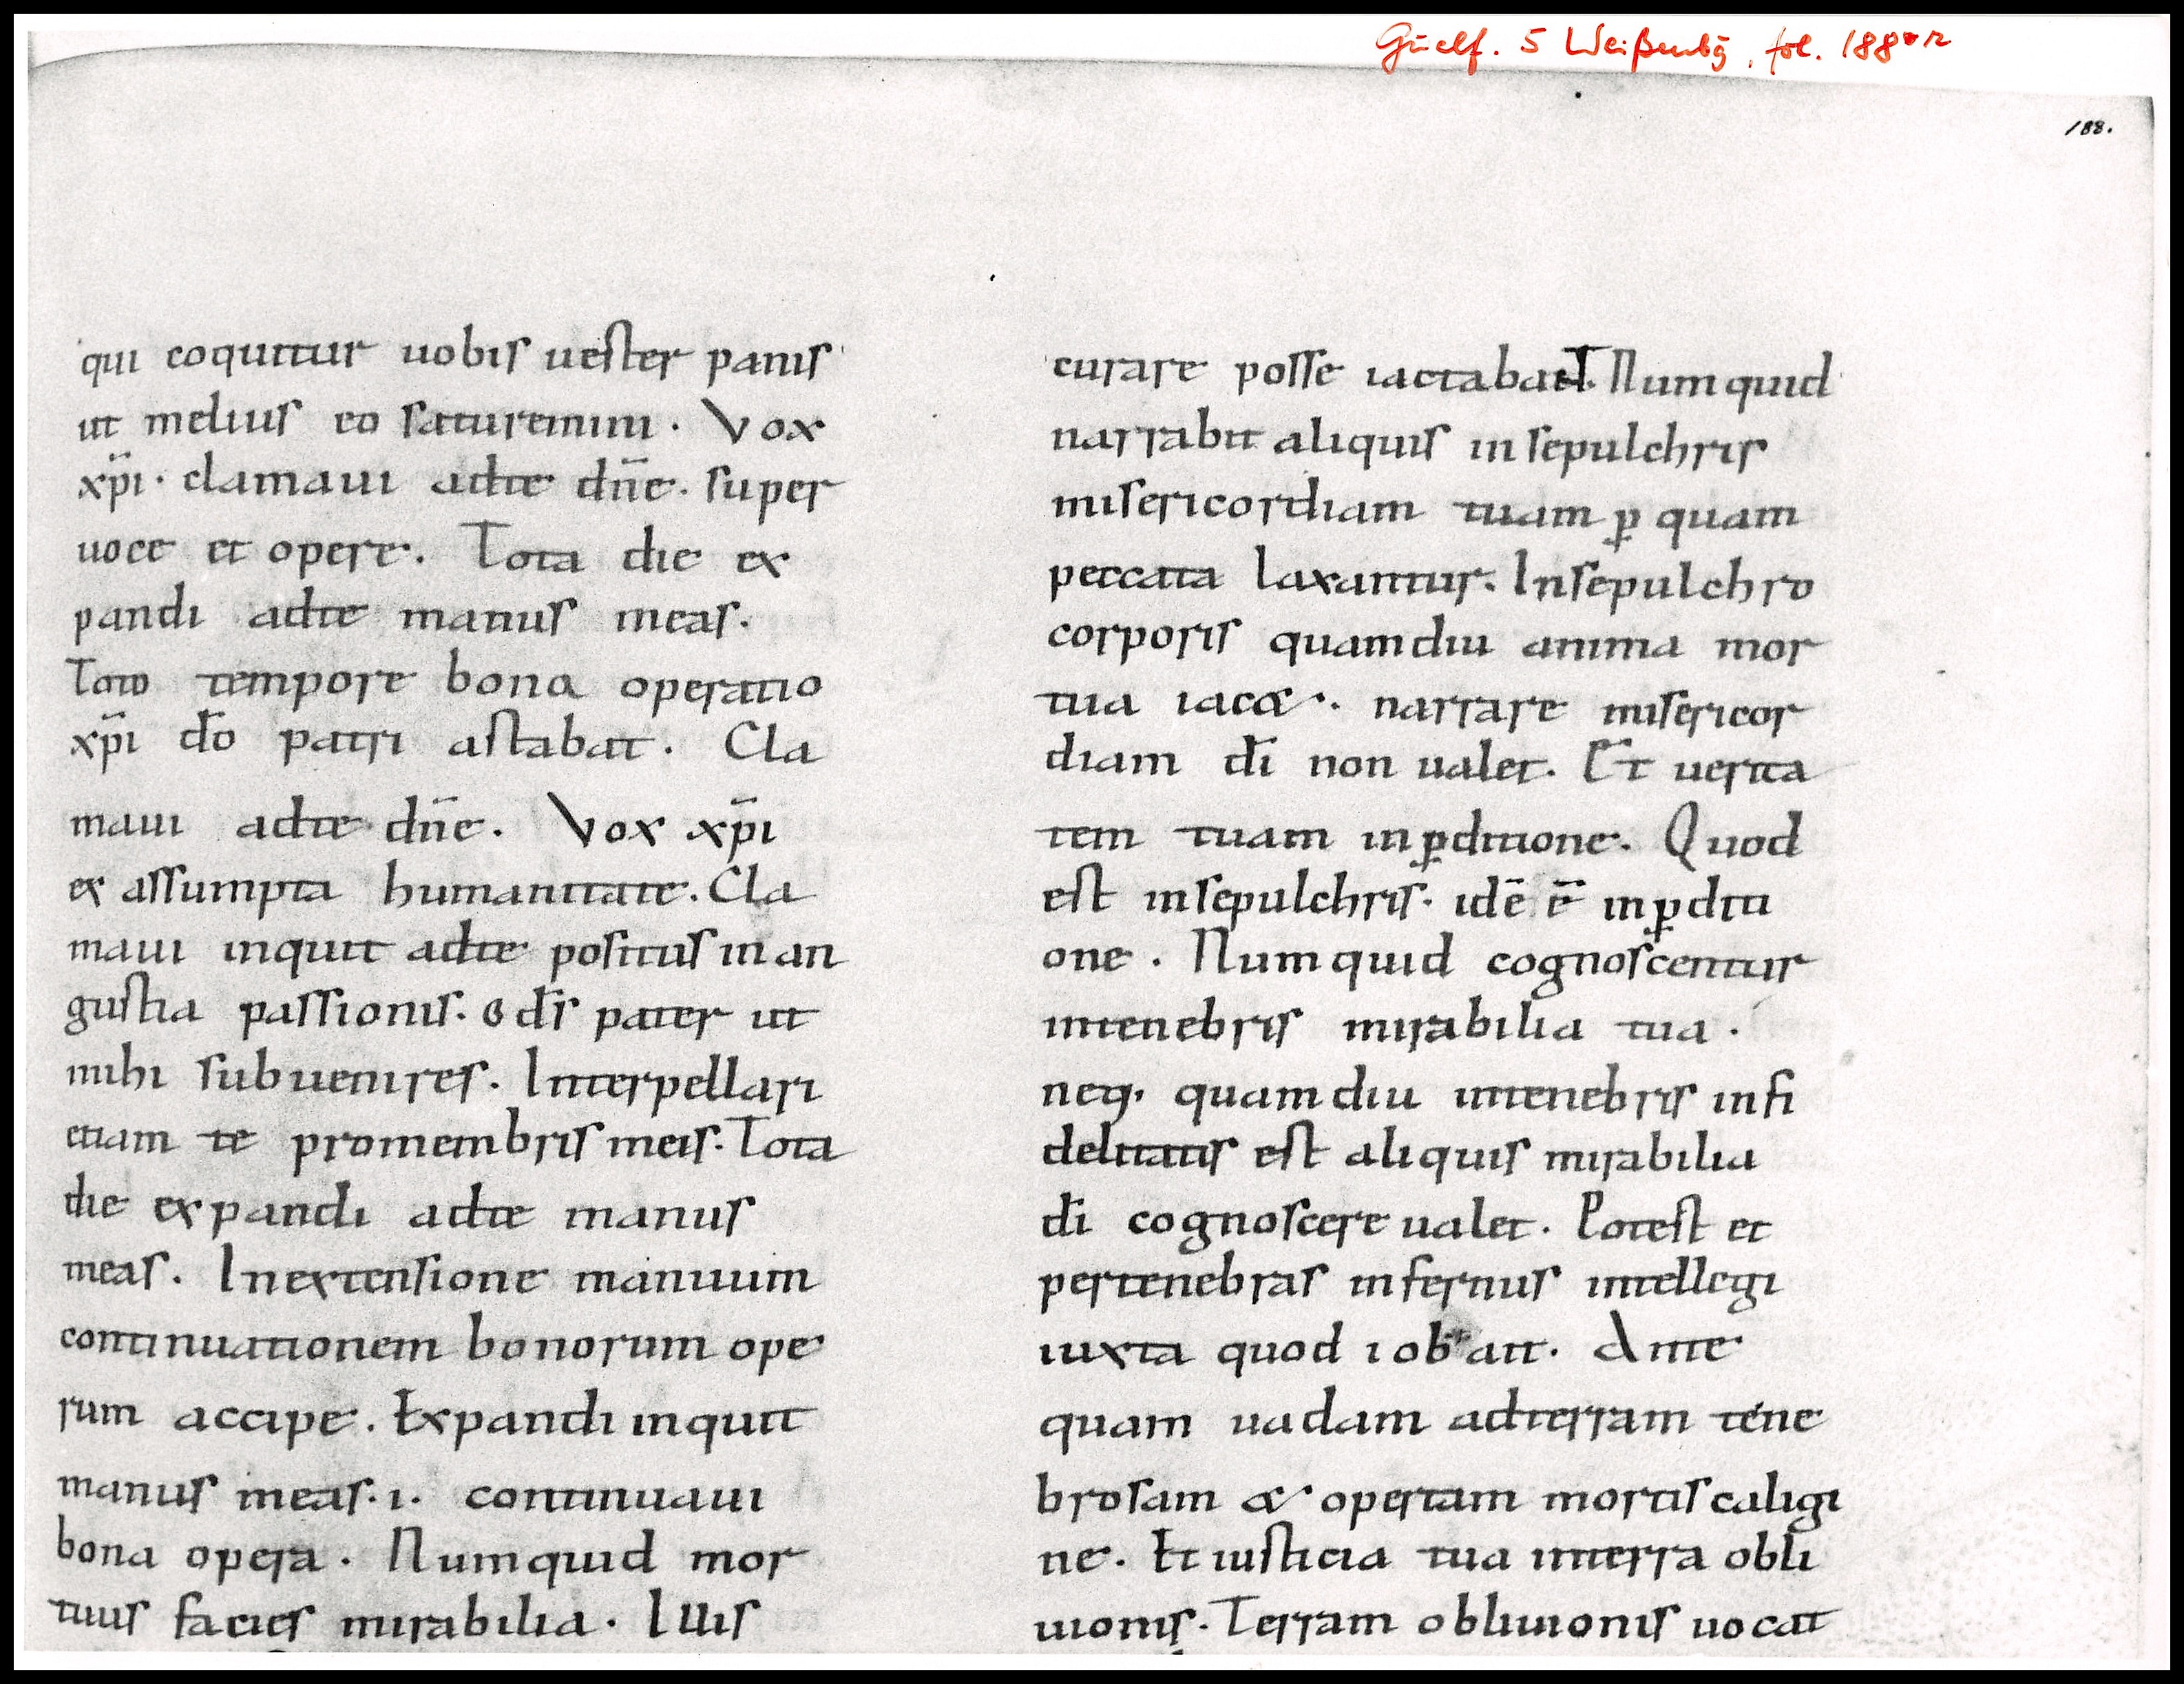 Guelf. 5 Weißenbg, fol. 188 r
188.
qui coquitur uobis uester panis
ut melius eo saturemini. Vox
xp̄i. clamaui adte dn̄e. super
uoce et opere. Tota die ex
pandi adte manus meas.
Toto tempore bona operatio
xp̄i dō patri astabat. Cla
maui adte dn̄e. Vox xp̄i
ex assumpta humanitate. Cla
maui inquit adte positus in an
gustia passionis. o dīs pater ut
mihi subuenires. Interpellari
etiam te promembris meis. Tota
die expandi adte manus
meas. Inextensione manuum
continuationem bonorum ope
rum accipe. Expandi inquit
manus meas. i. continuaui
bona opera. Numquid mor
tuis facies mirabilia. Illis
curare posse iactabant. Numquid
narrabit aliquis insepulchris
misericordiam tuam ꝑ quam
peccata laxantur. Insepulchro
corporis quamdiu anima mor
tua iac&. narrare misericor
diam dī non ualet. Et uerita
tem tuam inꝑditione. Quod
est insepulchris. idē ē inꝑditi
one. Numquid cognoscentur
intenebris mirabilia tua.
neq. quamdiu intenebris infi
delitatis est aliquis mirabilia
dī cognoscere ualet. Potest et
pertenebras infernus intellegi
iuxta quod iob ait. Ante
quam uadam adterram tene
brosam & opertam mortis caligi
ne. Et iusticia tua interra obli
uionis. Terram obliuionis uocat